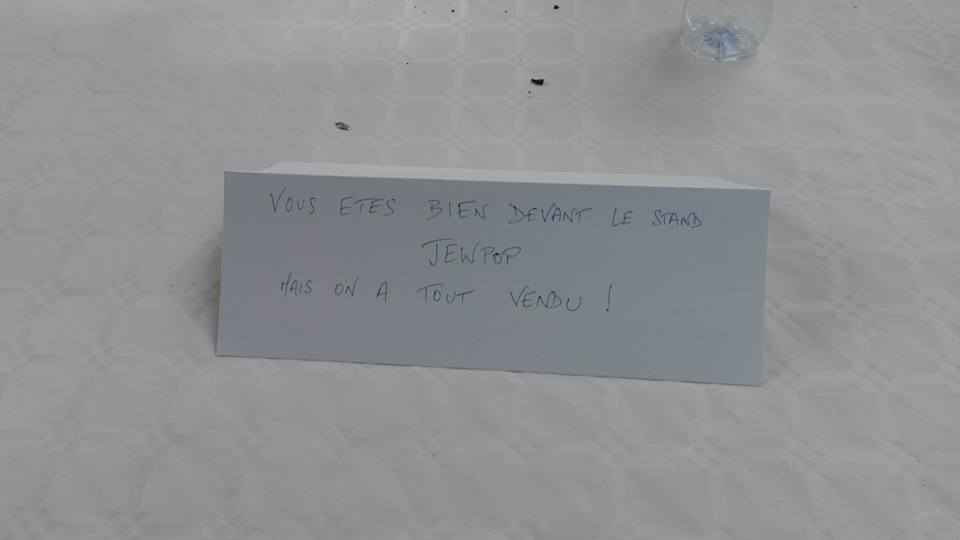 VOUS ETES BIEN DEVANT LE STAND
JEWPOP
MAIS ON A TOUT VENDU !